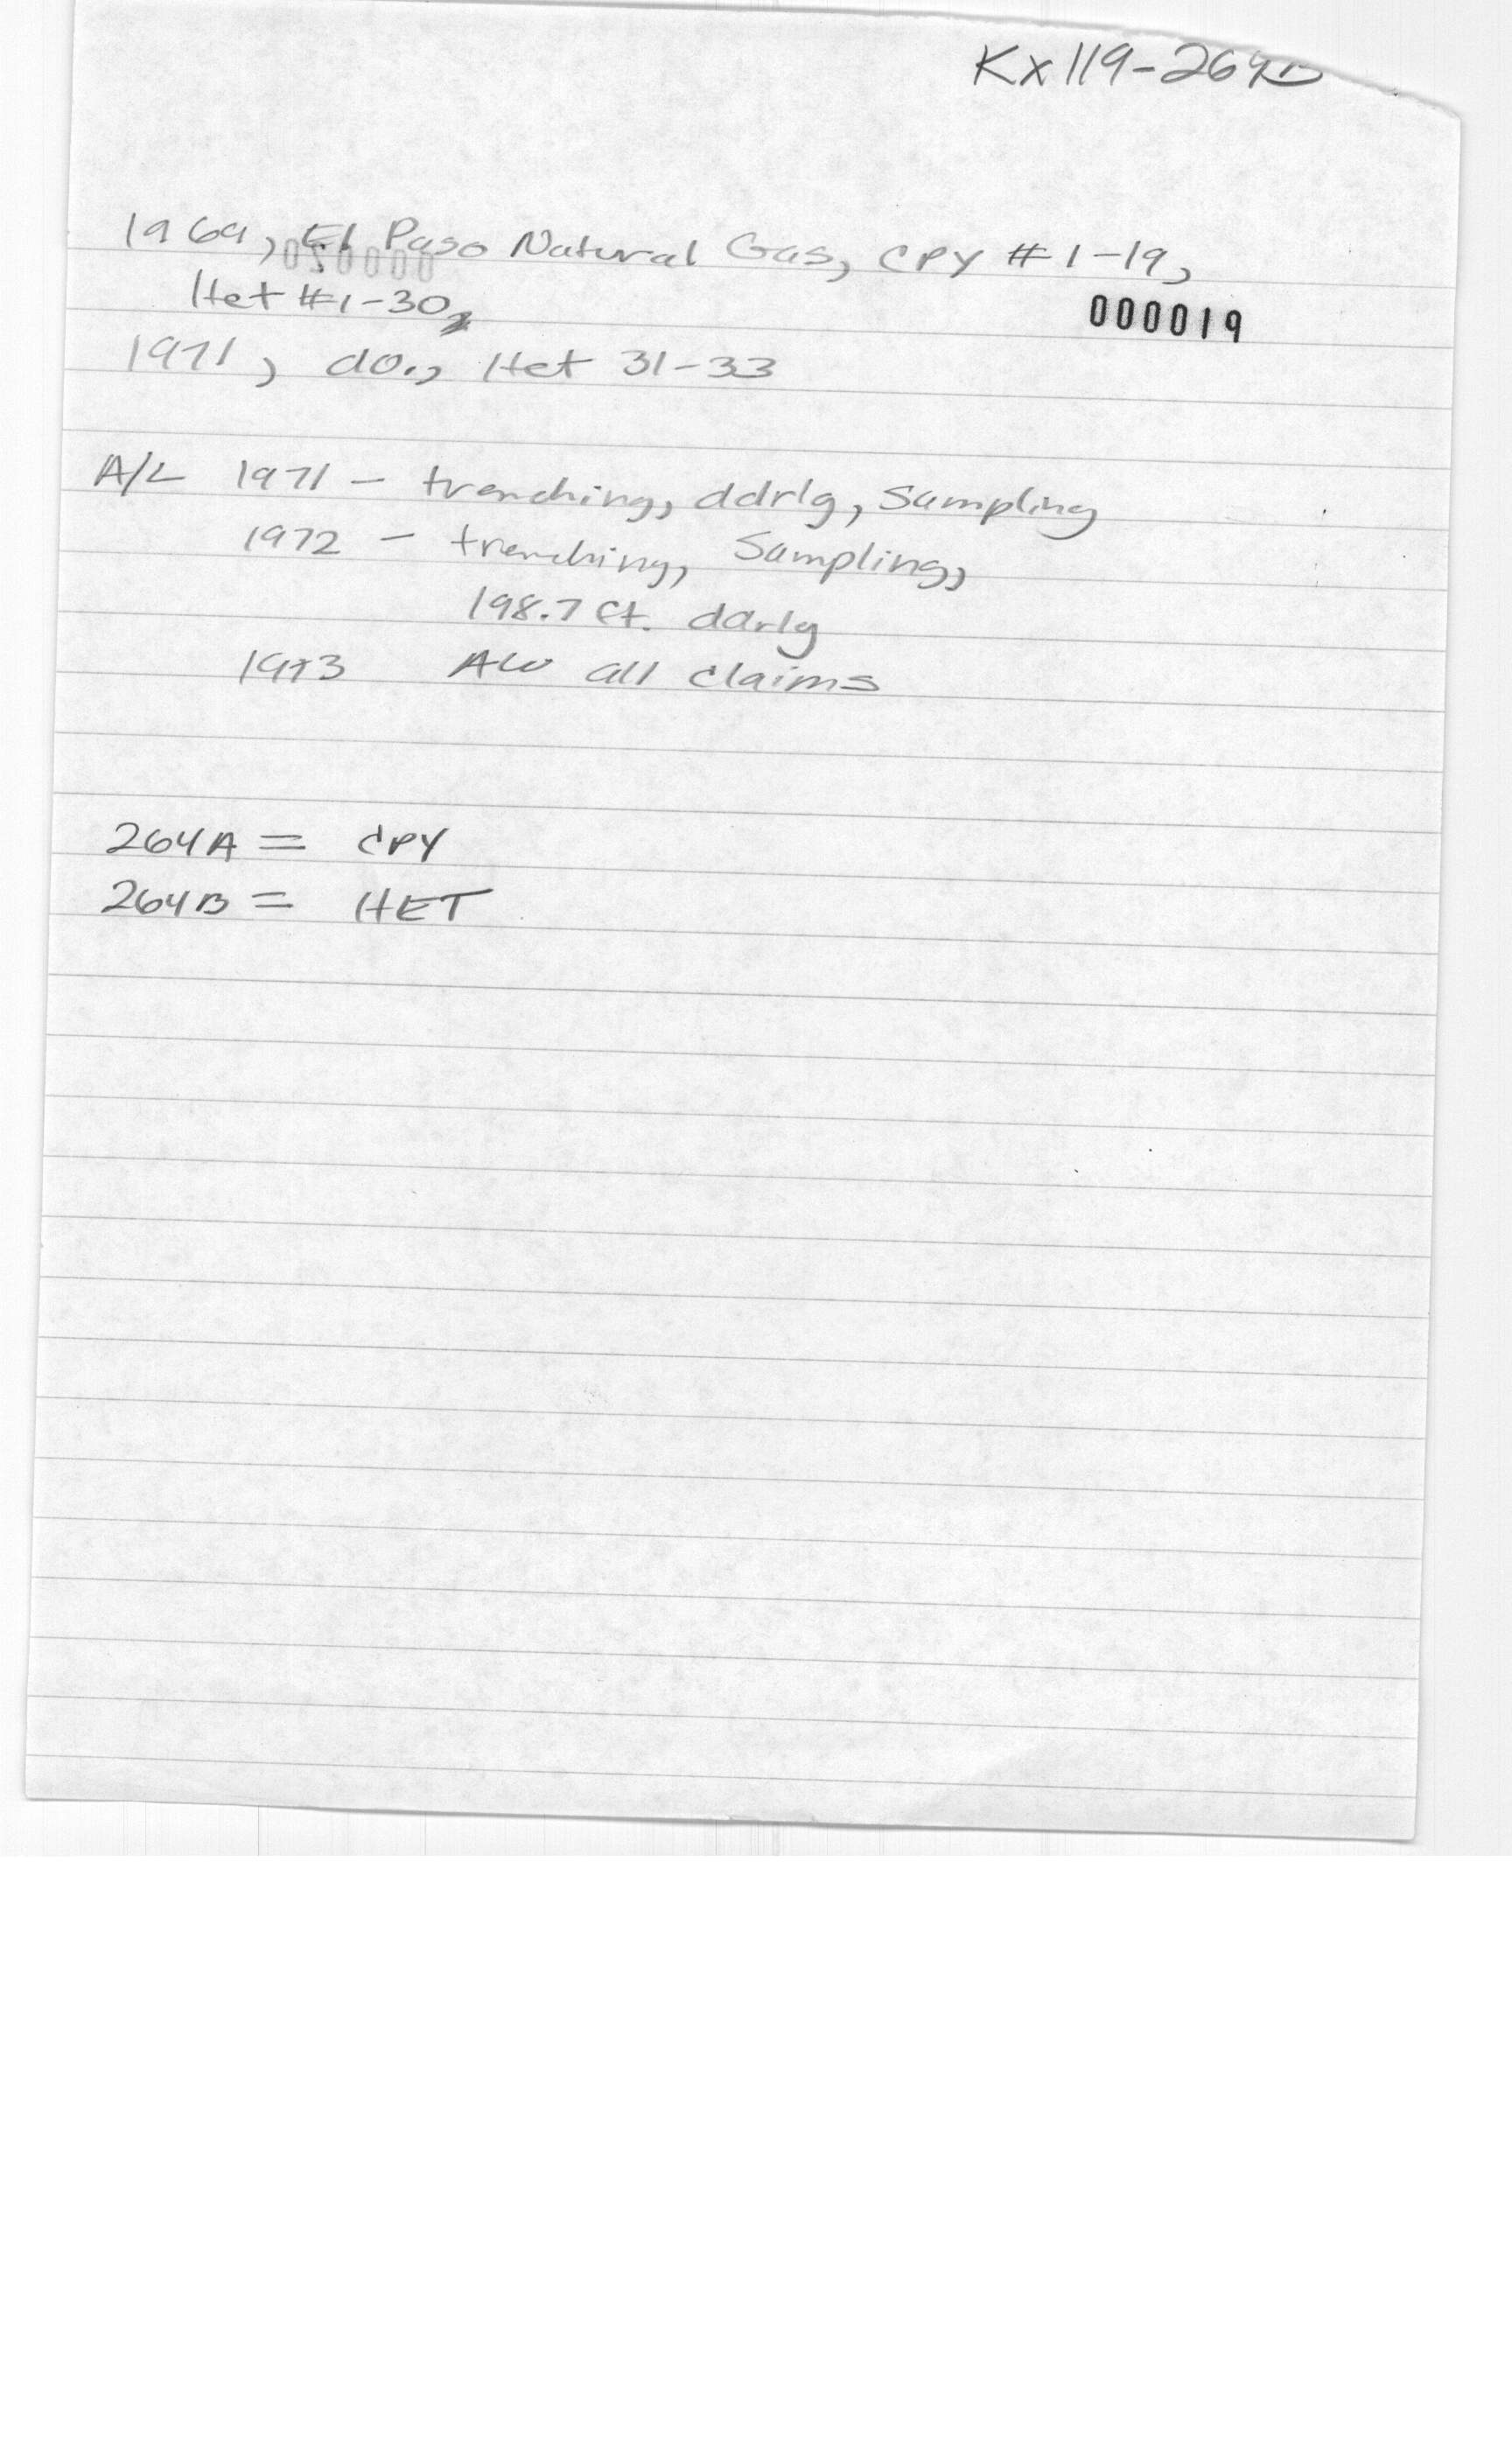 Kx119-264B
1969, El Paso Natural Gas, CPY #1-19,
000020
Het #1-30,
000019
1971, do., Het 31-33
A/L 1971 - trenching, ddrlg, Sampling
1972 - trenching, Sampling,
198.7 ft. ddrlg
1973 AW all claims
264A = CPY
264B = HET